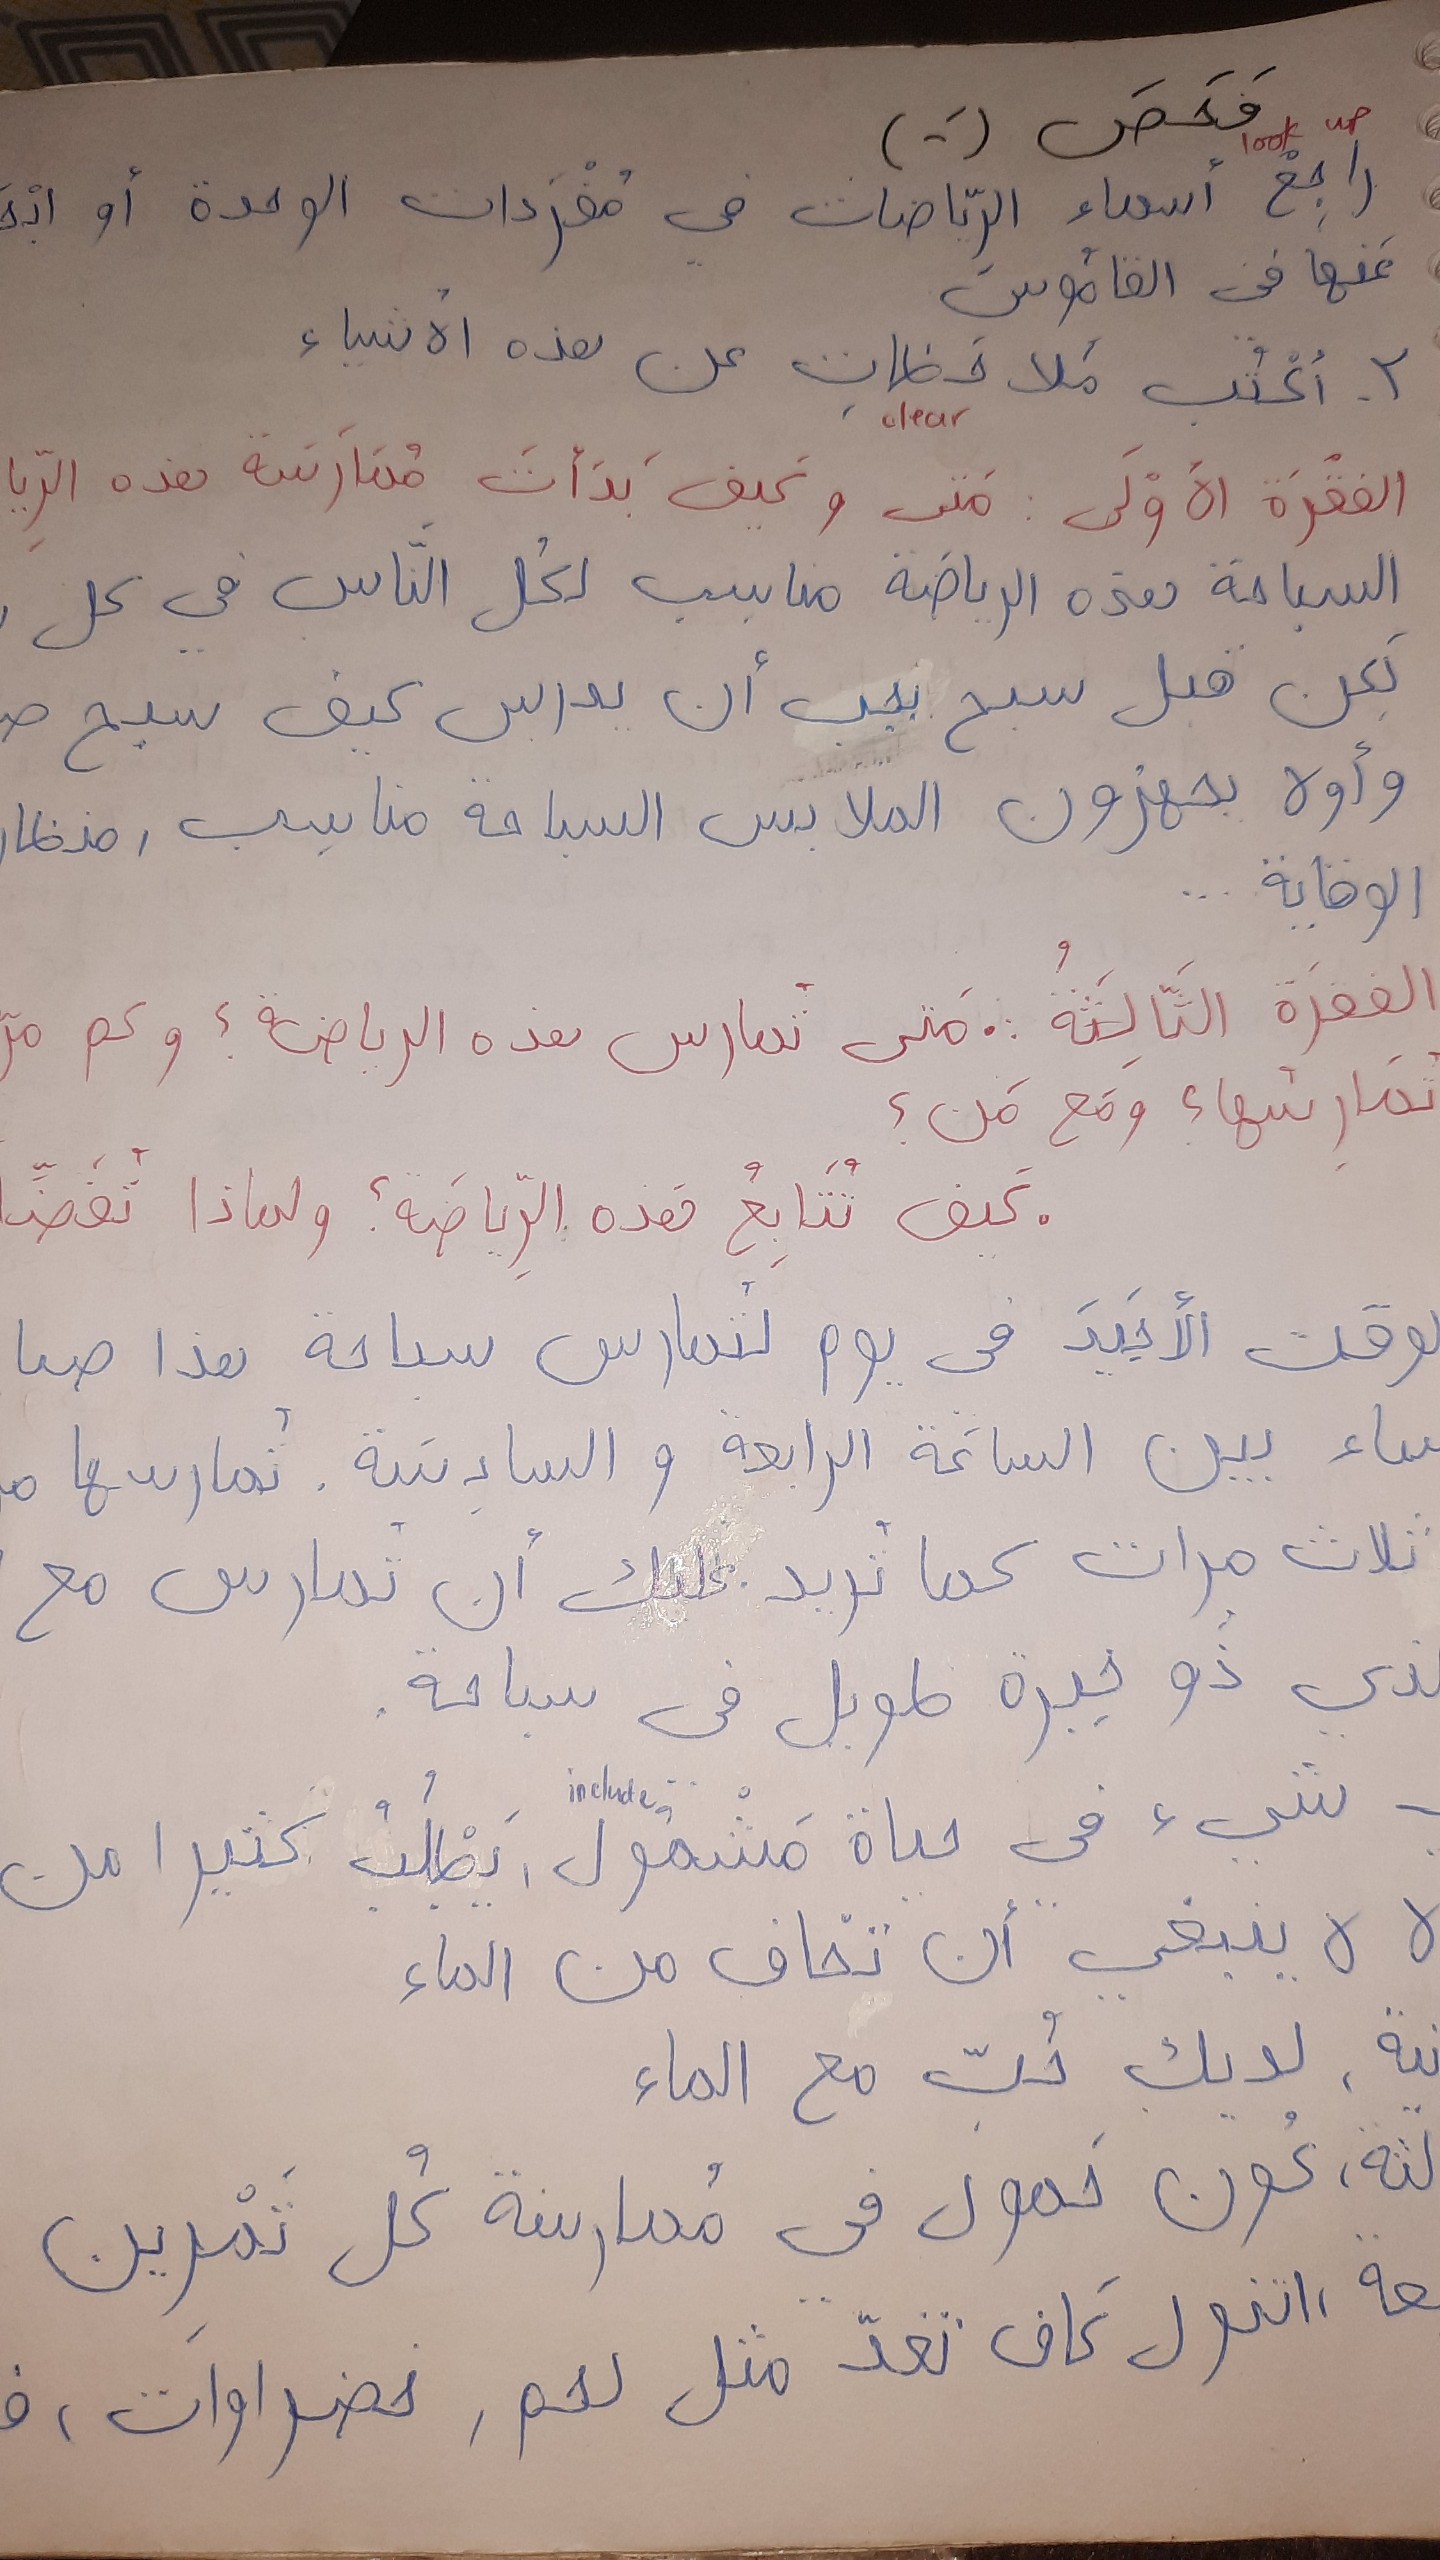 فَحَصَ (-َ)
look up
رَاجِعْ أسماء الرِّيَاضات في مُفْرَدات الوحدة أو
عَنها في القامُوس
٢. أُكْتُب مَلاحَظاتِ عن هذه الأشياء
clear
الفقْرَة الأوْلَى : مَتى و كَيف بَدَأتَ مُمَارَسَة هذه
السباحة هذه الرياضَة مناسب لكُل النّاس في كل
لَكِن قبل سبح يجب أن يدرس كيف سبح
وأولا يجهزون الملابس السباحة مناسِب ,
الوقاية ...
الفقرَة الثَّالِثَةُ : . مَتى تُمارس هذه الرياضة؟ وكم
تُمَارِسُها؟ ومَع مَن؟
. كَيف تُتَابِعُ هَذه الرِّيَاضَة؟ ولماذا
الأكيدَ في يوم لتُمارس سباحة هذا
بين الساعَة الرابعة و السادِسَة . تُمارسها
ثلاث مرات كما تُريد . عليك أن تُمارس مع
ذُو خِبرة طويل في سباحة .
include
شيء في حياة مَشْمُول , يَطْلُبُ كَثيرا من
لا ينبغي أن تخاف من الماء
لديك حُبّ مع الماء
كون حَمول في مُمارسة كُل تَمْرِين
كَاف تغدّ مثل لحم , خضراوات ،